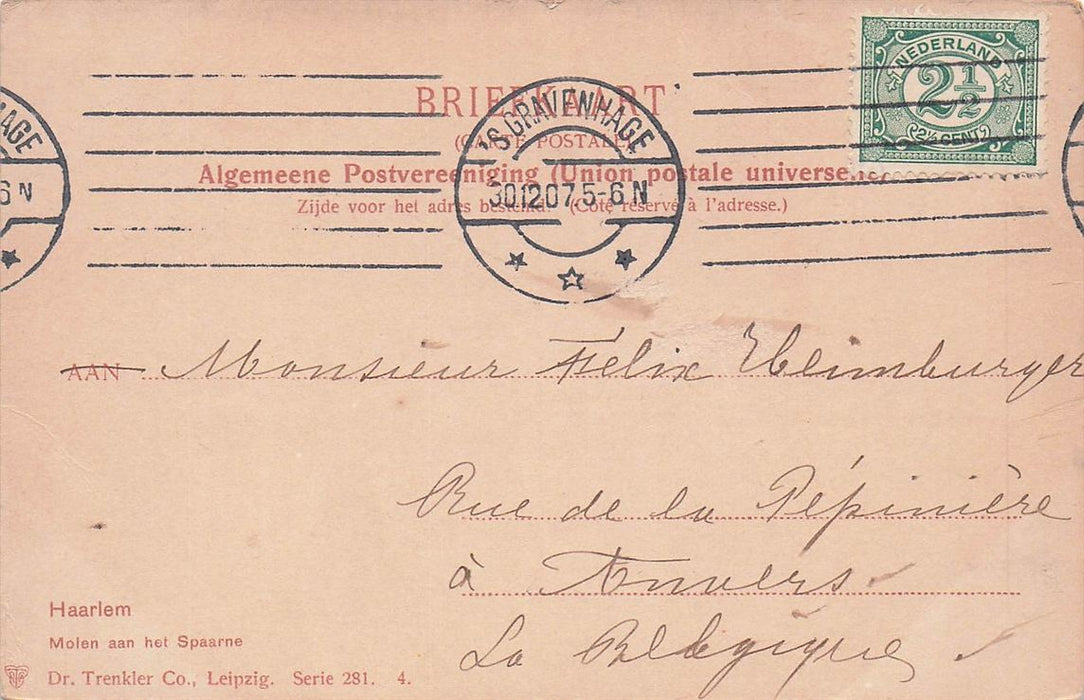 BRIEFKAART
(CARTE POSTALE)
Algemeene Postvereeniging (Union postale universelle)
Zijde voor het adres bestemd. (Côté réservé à l'adresse.)
NEDERLAND
2½
2½ CENT
'S GRAVENHAGE
30.12.07.5-6 N
AGE
6 N
AAN Monsieur Félix Heimburger
Rue de la Pépinière
à Anvers
La Belgique
Haarlem
Molen aan het Spaarne
Dr. Trenkler Co., Leipzig. Serie 281. 4.